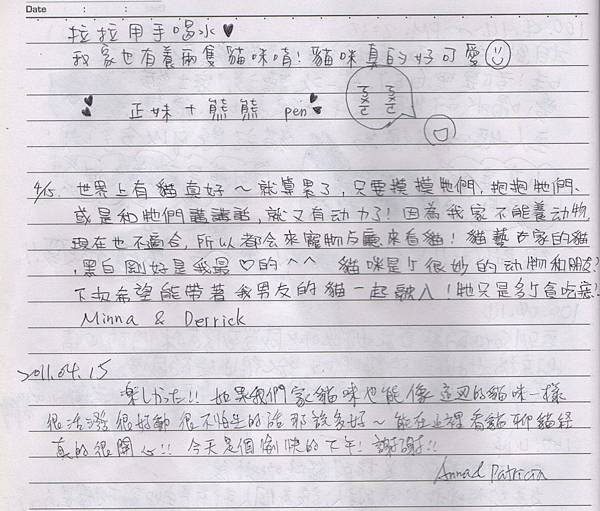 Date : :
拉拉用手喝水♥
我家也有養兩隻貓咪唷!貓咪真的好可愛
正妹+熊熊 pen
ㄋㄡˊ ㄋㄡˊ
4/15. 世界上有貓真好~就算累了,只要摸摸牠們,抱抱牠們、
或是和牠們講講話,就又有动力了!因為我家不能養动物
現在也不適合,所以都會來寵物友廳來看貓!貓藝古家的貓
,黑白剛好是我最♡的^^ 貓咪是个很妙的动物和朋友?
下次希望能帶著我男友的貓一起融入!牠只是多个貪吃鬼!
Minna & Derrick
2011.04.15
楽しかった!! 如果我們家貓咪也能像這边的貓咪一樣
很活潑很好動很不怕生的話那該多好~能在這裡看貓聊貓經
真的很開心!! 今天是個愉快的下午! 謝謝!!
Anna & Patricia